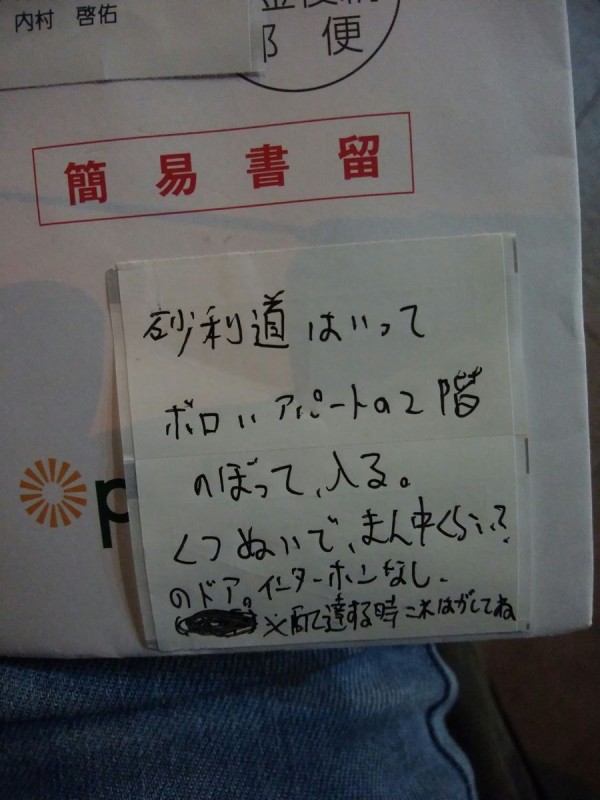 内村 啓佑
郵便
簡易書留
砂利道はいって
ボロいアパートの2階
のぼって、入る。
くつぬいで、まん中くらい?
のドア。インターホンなし。
※配達する時これはがしてね